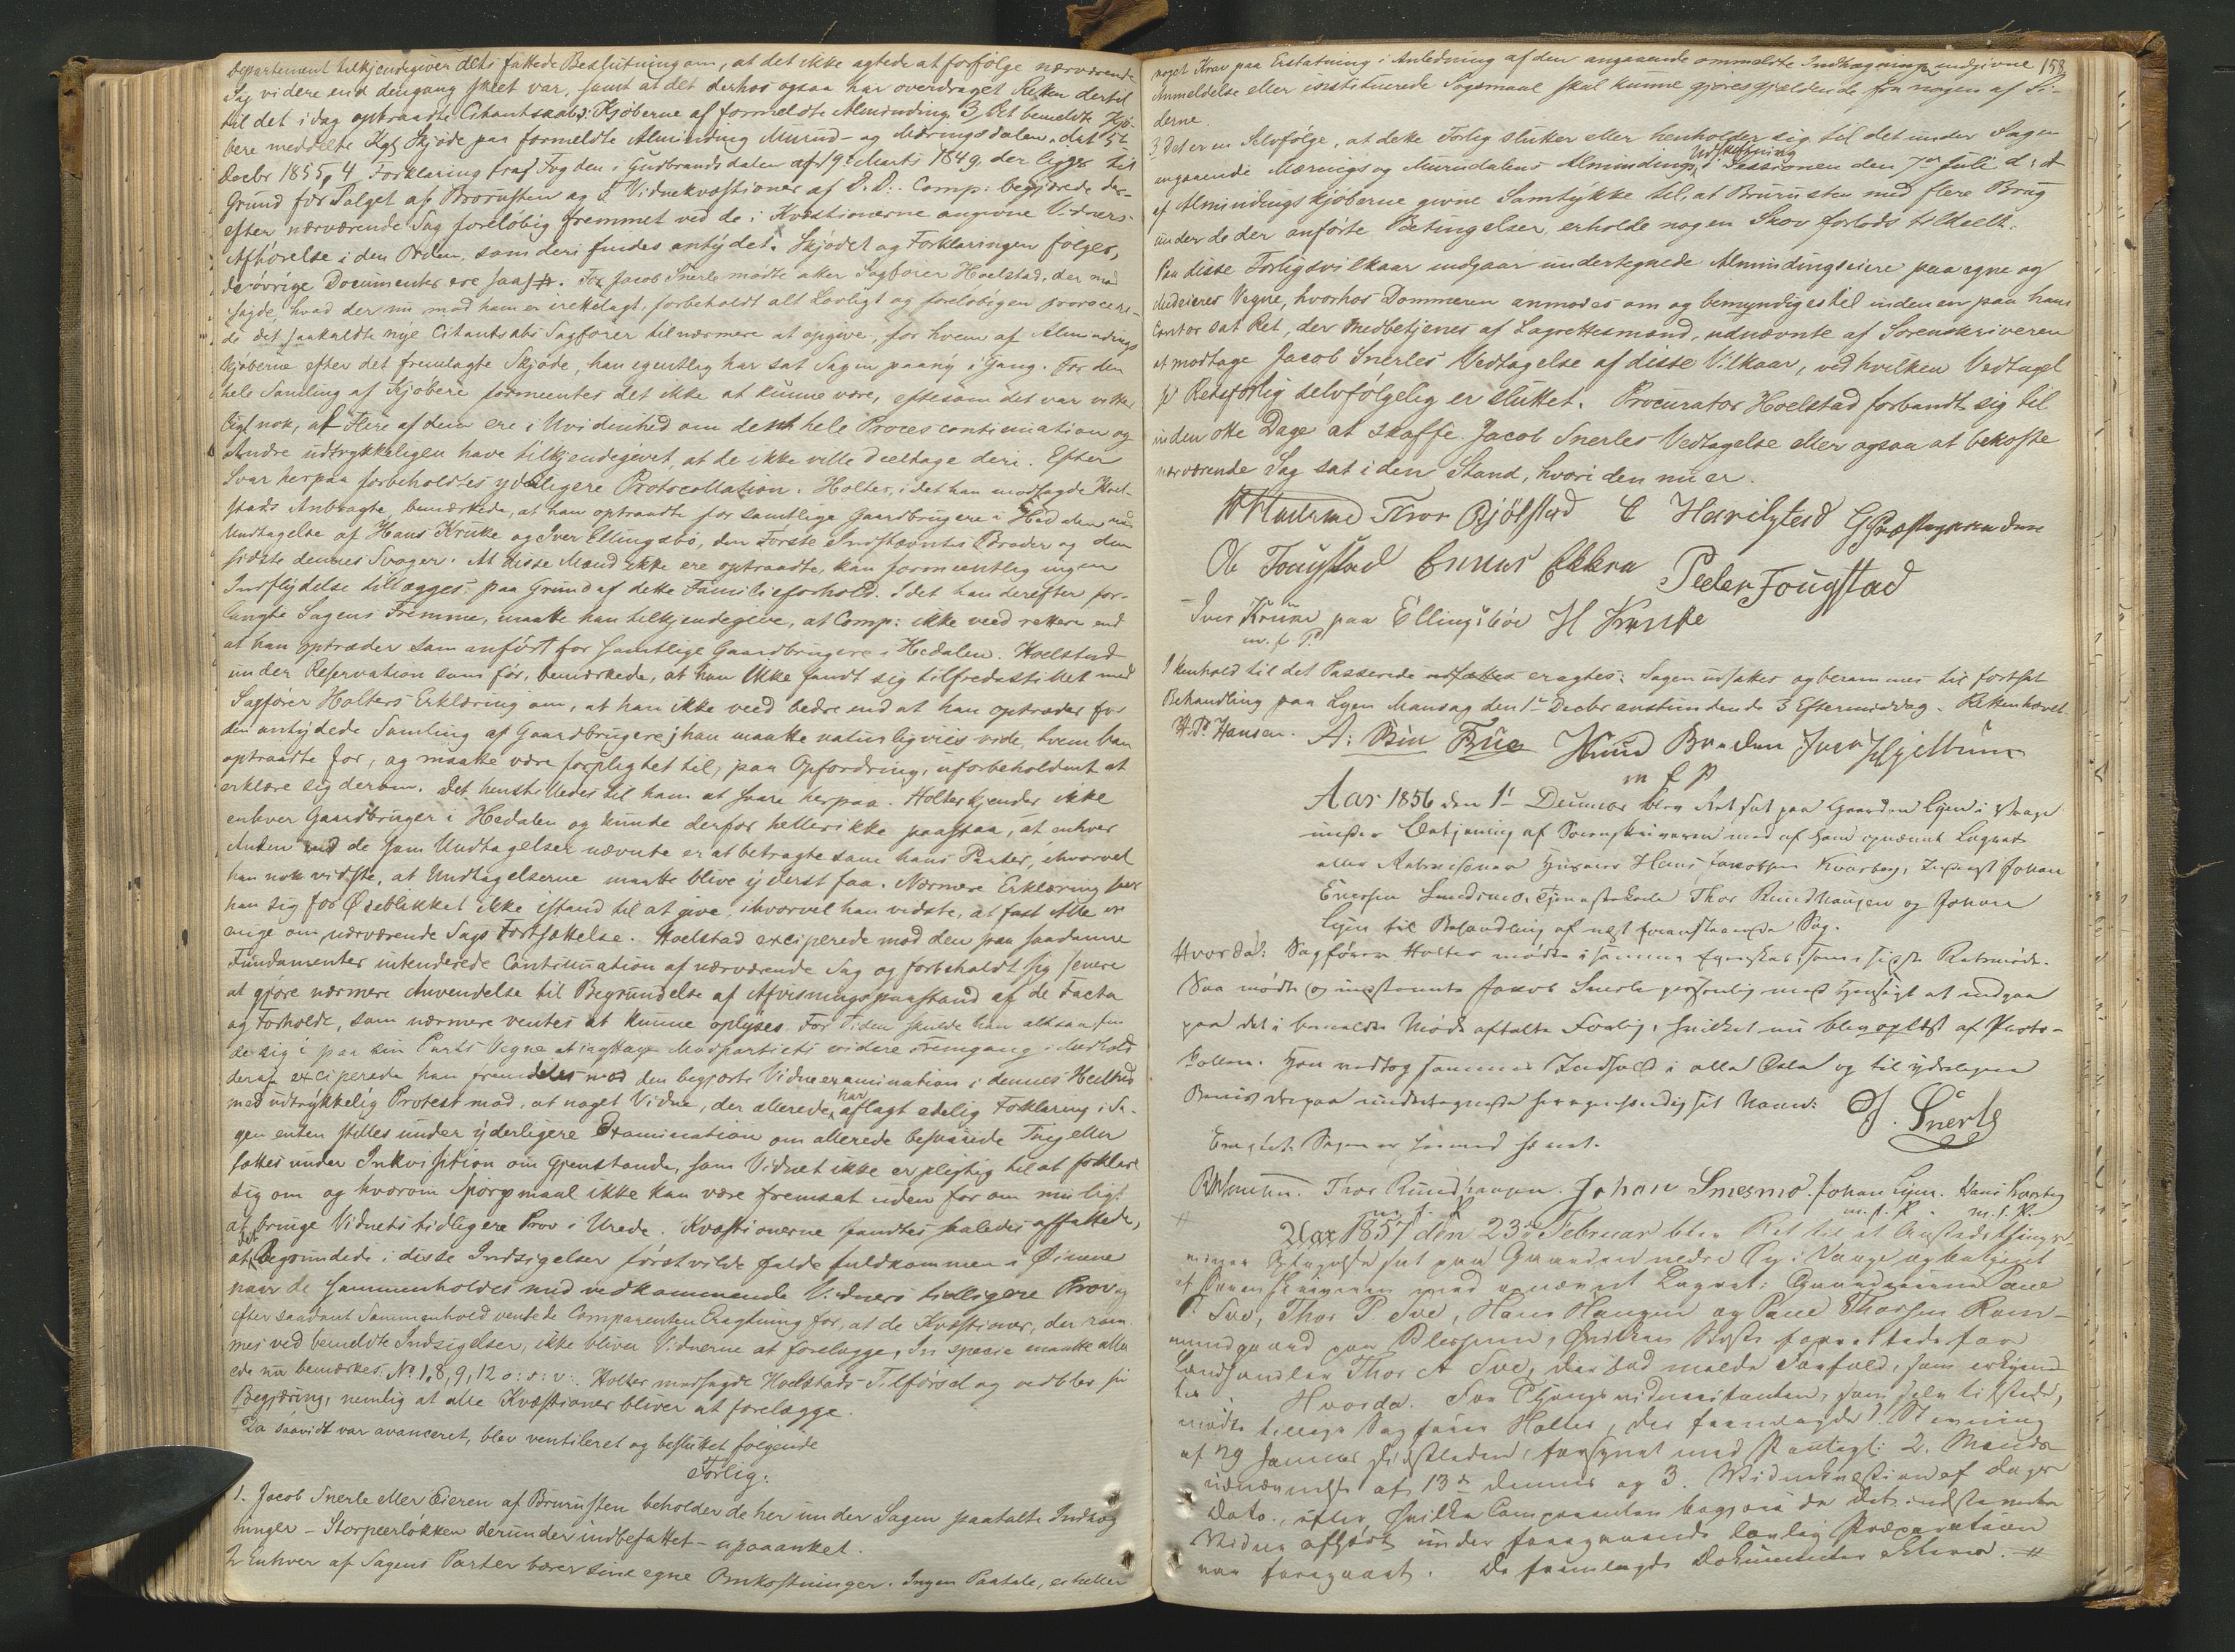 Departement tilkjendegiver dets fattede Beslutning om, at det ikke agtede at forfölge nærværende
Sag videre end dengang skeet var, samt at det derhos ogsaa har overdraget Retten dertil
til det i dag optraadte Citantskab: Kjöberne af formeldte Alminding 3, Det bemeldte Kjö-
bere meddelte Kgl. Skjöde paa formeldte Alminding Murud- og Mæringsdalen, dat 5te
Decbr 1855, 4, Forklaring fra Fogden i Gudbrandsdalen af 19de Marts 1849, der ligger til
Grund for Salget af Brorusten og 5 Vidnekvæstioner af D. D. Comp: begjærede der-
efter nærværende Sag foreløbig fremmet ved de i Kvæstionerne angivne Vidners
Afhörelse i den Orden, som deri findes antydet. Skjödet og Forklaringen fölges,
de övrige Documenter ere saa. For Jacob Snerle mödte atter Sagförer Hoelstad, der mod-
sagde, hvad der nu mod ham er irettelagt, forbeholdt alt Lovligt og foreløbigen provocere-
de det saakaldte nye Citantskabs Sagförer til nærmere at opgive, for hvem af Almindings
Kjöberne efter det fremlagte Skjöde, han egentlig har sat Sagen paany i Gang. For den
hele Samling af Kjöbere formeentes det ikke at kunne være, eftersom det var vitter-
ligt nok, at Flere af dem ere i Uvidenhed om denne hele Procescontinuation og
Andre udtrykkeligen have tilkjendegivet, at de ikke ville deeltage deri. Efter
Svar herpaa forbeholdtes yderligere Protocollation. Holter, idet han modsagde Hoel-
stads Anbragte, bemærkede, at han optraadte for samtlige Gaardbrugere i Hedalen med
Undtagelse af Hans Kruke og Iver Ellingsbö, den Förste Indstævntes Broder og den
sidste dennes Svoger. At disse Mænd ikke ere optraadte, kan formeentlig ingen
Indflydelse tillægges paa Grund af dette Familieforhold. Idet han derefter for-
langte Sagens Fremme, maatte han tilkjendegive, at Comp: ikke veed rettere end
at han optræder som anfört for samtlige Gaardbrugere i Hedalen. Hoelstad
under Reservation som för, bemærkede, at han ikke fandt sig tilfredsstillet med
Sagförer Holters Erklæring om, at han ikke veed bedre end at han optræder for
den antydede Samling af Gaardbrugere; han maatte naturligviis vide, hvem han
optraadte for, og maatte være forpligtet til, paa Opfordring, uforbeholdent at
erklære sig derom. Det henstilledes til ham at svare herpaa. Holter kjender ikke
enhver Gaardbruger i Hedalen og kunde derfor heller ikke paastaa, at enhver
Anden end de som Undtagelser nævnte er at betragte som hans Parter, ihvorvel
han nok vidste, at Undtagelserne maatte blive yderst faa. Nærmere Erklæring saae
han sig for Øieblikket ikke istand til at give, ihvorvel han vidste, at fast Alle ere
enige om nærværende Sags Fortsættelse. Hoelstad exciperede mod den paa saadanne
Fundamenter intenderede Continuation af nærværende Sag og forbeholdt sig senere
at gjöre nærmere Anvendelse til Begrundelse af Afviisningspaastand af de Facta
og Forholde, som nærmere ventes at kunne oplyses. For Tiden skulde han altsaa fin-
de sig i paa sin Parts Vegne at iagttage Modpartiets videre Fremgang i Medhold
deraf exciperede han fremdeles mod den begjærte Vidneexamination i dennes Heelhed
med udtrykkelig Protest mod, at noget Vidne, der allerede har aflagt edelig Forklaring i Sa-
gen enten stilles under yderligere Examination om allerede besvarede Ting eller
sættes under Inkvisition om Gjenstande, som Vidnet ikke er pligtig til at forklare
sig om og hvorom Spörgsmaal ikke kan være fremsat uden for om muligt
at bringe Vidnets tidligere Prov i Urede. Kvæstionerne fandtes saaledes affattede,
at det Begrundede i disse Indsigelser först vilde falde fuldkommen i Øinene
naar de sammenholdes med vedkommende Vidners tidligere Prov og
efter saadant Sammenhold ventede Comparenten Eragtning for, at de Kvæstioner, der ram-
mes ved bemeldte Indsigelser, ikke bliver Vidnerne at forelægge. In specie maatte aller-
ede nu bemærkes No 1, 8, 9, 12 o: s: v:. Holter modsagde Hoelstads Tilförsel og vedblev sin
Begjæring, nemlig at alle Kvæstioner bliver at forelægge.
Da saavidt var avanceret, blev ventileret og besluttet fölgende
Forlig:
1. Jacob Snerle eller Eieren af Brurusten beholder de her under Sagen paatalte Indhæg
ninger – Storpeerlökken derunder indbefattet – upaaanket.
2 Enhver af Sagens Parter bærer sine egne Omkostninger. Ingen Paatale, ei heller
158
noget Krav paa Erstatning i Anledning af den angaaende ommeldte Indhegninger indgivne
Anmeldelse eller instituerede Sögsmaal skal kunne gjöres gjældende fra nogen af Si-
derne.
3 Det er en Selvfölge, at dette Forlig slutter eller henholder sig til det under Sagen
angaaende Mærings og Murudalens Almindings Udskiftning i Sessionen den 7de Juli d: A
af Almindingskjöberne givne Samtykke til, at Brurusten med flere Brug
under de der anförte Betingelser erholde nogen Skov forlods tildeelt.
Paa disse Forligsvilkaar indgaar undertegnede Almindingseiere paa egne og
Medeieres Vegne, hvorhos Dommeren anmodes om og bemyndiges til inden en paa hans
Contor sat Ret, der medbetjenes af Lagrettesmænd, udnævnte af Sorenskriveren
at modtage Jacob Snerles Vedtagelse af disse Vilkaar, ved hvilken Vedtagel
se Retsforlig selvfölgelig er sluttet. Procurator Hoelstad forbandt sig til
inden otte Dage at skaffe Jacob Snerles Vedtagelse eller ogsaa at bekoste
nærværende Sag sat i den Stand, hvori den nu er.
Thor Bjölstad
Ole Tougstad Peder Tougstad
Iver Kruke paa Ellingsböe H Kruke
m. f. P.
I Henhold til det Passerede eragtes: Sagen udsættes og berammes til fortsat
Behandling paa Lyen Mandag den 1ste Decbr anstundende 3 Eftermiddag. Retten hævet.
H. P. Hansen. Knud Braden Iver
m f P
Aar 1856 den 1te December blev Ret sat paa Gaarden Lyen i Vaage
under Betjening af Sorenskriveren med af ham opnævnt Lagret
Hans Jacobsen Kvarberg, Johan
Thor Rundhaugen og Johan
Lyen til Behandling af næst foranstaaende Sag.
Hvorda: Sagförer Holter mödte i samme Egenskab, som i sidste Retsmöde.
Saa mödte og indstævnte Jacob Snerle personlig med Hensigt at indgaa
paa det i bemeldte Möde aftalte Forlig, hvilket nu blev oplæst af Proto-
kollen. Han vedtog sammes Indhold i alle Dele og til ydeligere
Beviis derpaa undertegnede han egenhændig sit Navn: J. Snerle
Eragtet: Sagen er hermed hævet.
Thor Rundhaugen. Johan Snesmo. Johan Lyen. Hans Kvarberg
m. f. P. m. f. P. m. f. P.
Aar 1857 den 23de Februar blev Ret til et Aasteds Things-
vidnes Optagelse sat paa Gaarden nedre Sve i Vaage og betjent
af Sorenskriveren med opnævnt Lagret: Gaardmænd Paul
P. Sve, Thor P. Sve, Hans Haugen og Paul Thorsen Ram-
mundgaard paa Blessum, hvilken Sidste forrettede for
Landhandler Thor A Sve, der havde meldt Forfald, som erkjend-
tes. Hvorda. For Thingsvidnecitanten, som selv tilstede,
mödte tillige Sagförer Holter, der fremlagde 1. Stævning
af 29 Januar sidstleden, forsynet med Paategn: 2. Mænds
udnævnelse af 13de dennes og 3. Vidnekvæstioner af Dags
Dato, efter hvilke Comparenten begjærede de indstævnte
Vidner afhört under foregaaende lovlig Præparation
var foregaaet. De fremlagte Dokumenter